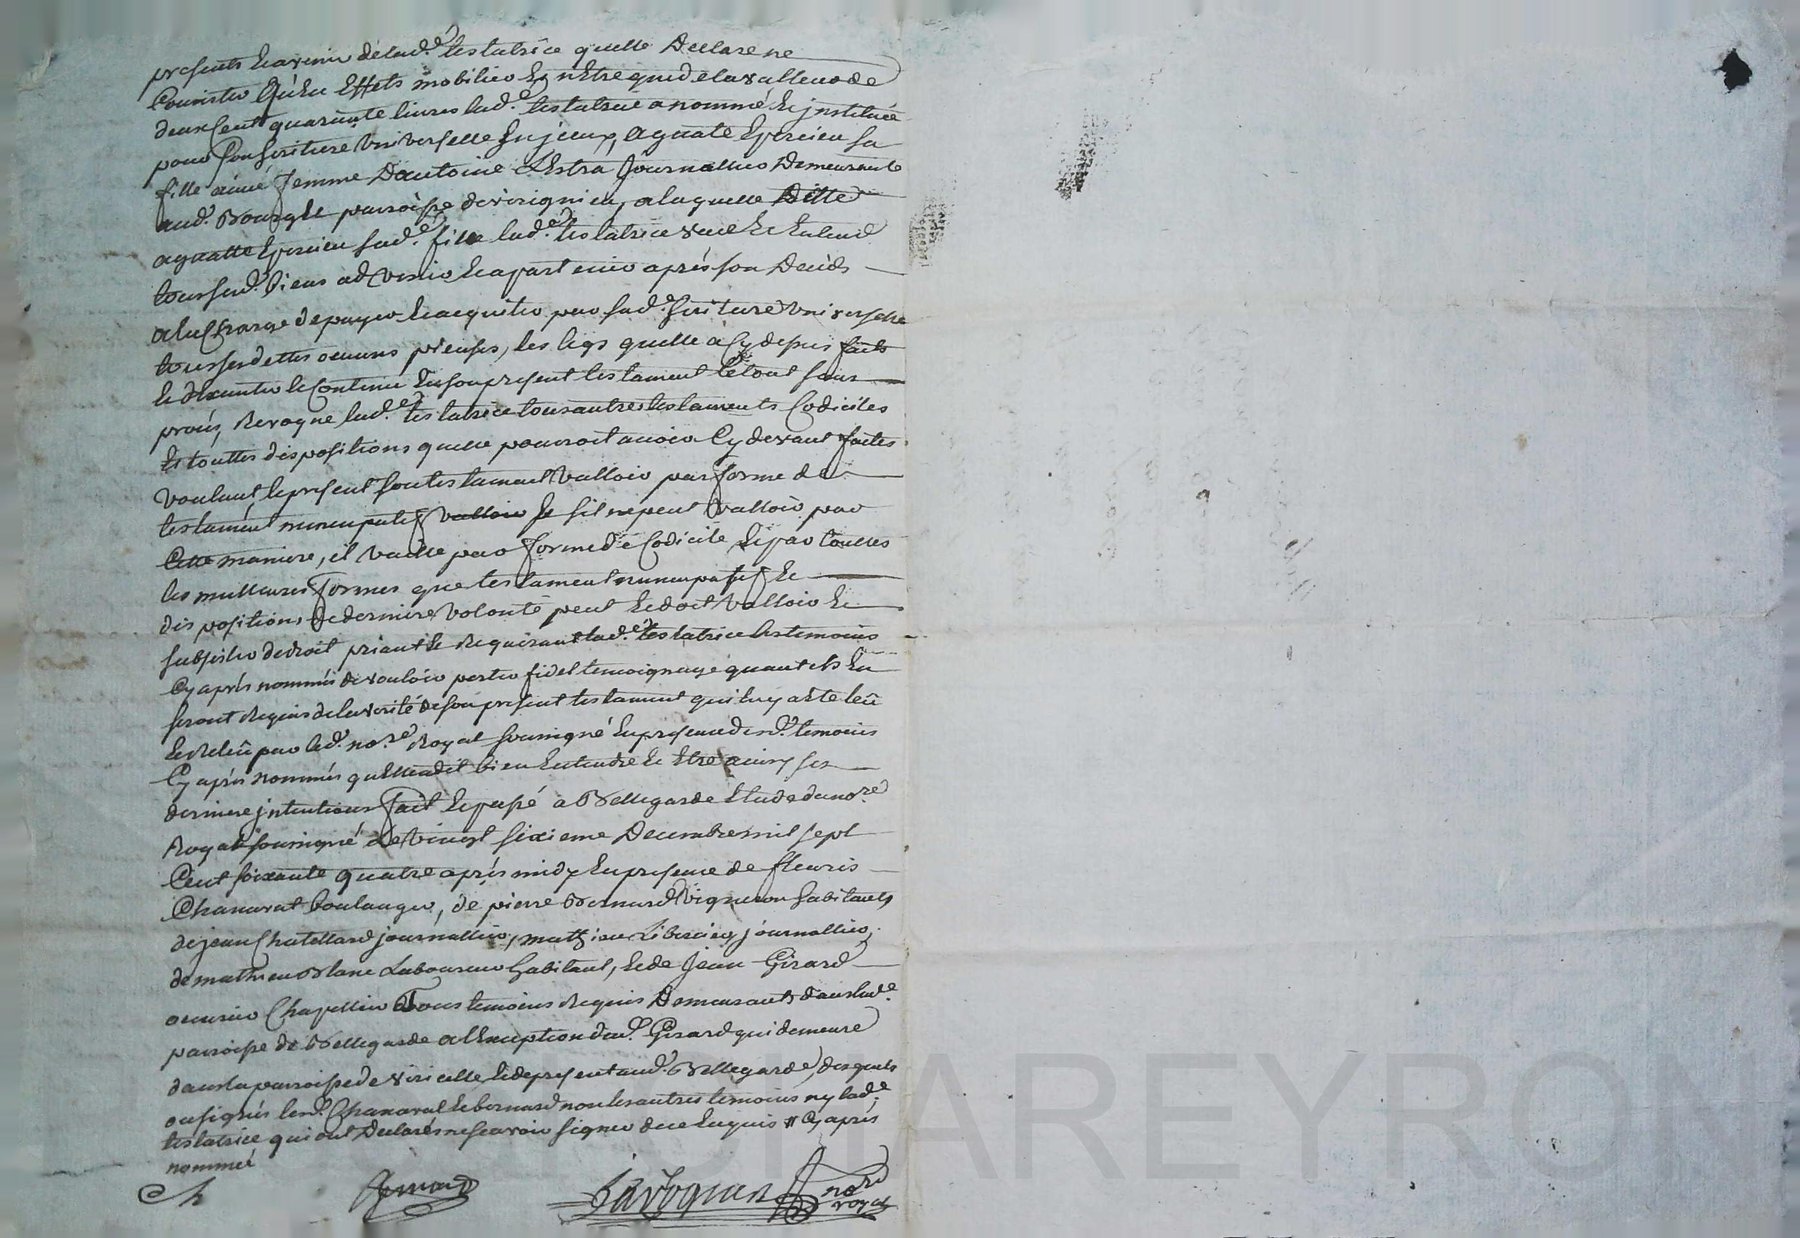 presents et avenir de lad.e testatrice quelle Declare ne
Consister qu'en Effets mobilier et n'Etre que de la valleur de
deux Cent quarante livres lad.e testatrice a nommé et jnstitué
pour son heritiere universelle
fille aimé femme D'antoine Journallier Demeurante
aud. Bourg et parroisse de a laquelle Ditte
agnatte sad.e fille lad.e testatrice veut et Entend
tous sesd. biens advenir et apartenir aprés son Decés
a la Charge de payer et acquiter par sad.e heritiere universelle
tous ses dettes oeuvres pieuses, les legs quelle a Cy depuis faits
et d'Executer le Contenu En son present testament le tout sans
procés, Revoque lad.e testatrice tous autres testaments Codiciles
et touttes dispositions quelle pourroit avoir Cy devant faites
voulant le present son testament valloir par forme de
testament nuncupatif valloir et sil ne peut valloir par
Cette maniere, il vaille par forme de Codicile et par touttes
les meilleures formes que testament nuncupatif et
dispositions de derniere volonté peut et doit valloir et
subsister de droit priant et Requerant lad.e testatrice les temoins
Cy aprés nommés de vouloir porter fidel temoignage quant ils En
seront Requis de la verité de son present testament qui luy a Eté leû
et Releû par led. no.re Royal soussigné En presence desd. temoins
Cy aprés nommés quelle a dit bien Entendre et Etre ainsy ses
derniere jntentions fait et passé a Bellegarde Etude du no.re
Royal soussigné le vingt sixieme Decembre mil sept
Cent soixante quatre aprés midy En presence de fleuris
Chanavat boulanger, de pierre Bernard vigneron habitants
de jean Chatellard journallier, mathieu journallier,
de mathieu Blanc Laboureur habitant, et de Jean Girard
ouvrier Chapellier Tous temoins Requis Demeurants dans lad.e
parroisse de Bellegarde a l'Exception dud. Girard qui demeure
dans la parroisse de viricelle et de present aud. Bellegarde, desquels
ont signés lesd. Chanavat et bernard non les autres temoins ny lad.e
testatrice qui ont Declarés ne sçavoir signer de ce Enquis Cy aprés
nommée
Bernard
no.re
royal
CHAREYRON